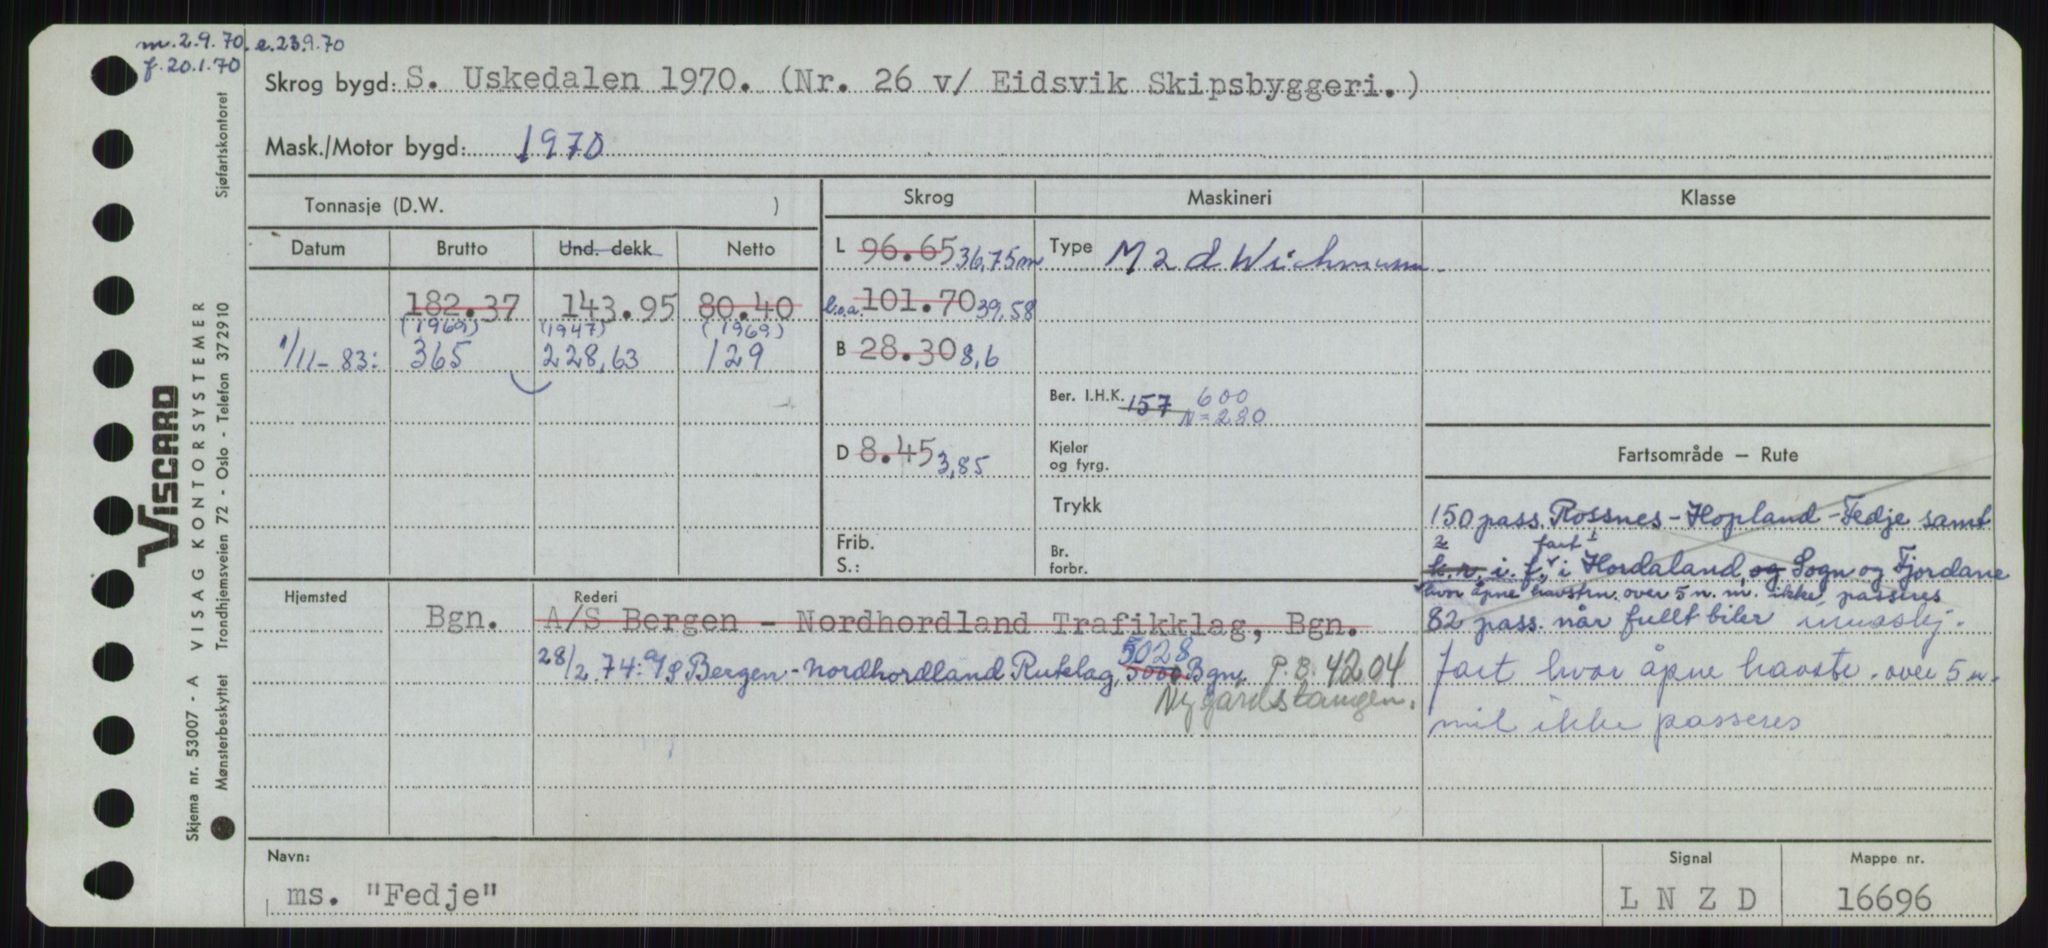 m. 2.9.70. e.23.9.70
f. 20.1.70
Skrog bygd: S. Uskedalen 1970. (Nr. 26 v/ Eidsvik Skipsbyggeri.)
Mask./Motor bygd: 1970
Tonnasje (D.W. )
Skrog
Maskineri
Klasse
Datum Brutto Und. dekk Netto
L 96.65 36,75m
Type M 2 d Wichmann
182.37 143.95 80.40
l.o.a. 101.70 39,58
(1969) (1947) (1969)
1/11-83: 365 228,63 129
B 28.30 8,6
Ber. I.H.K. 157 600
N=280
D 8.45 3,85
Kjeler
og fyrg.
Trykk
Frib.
S.:
Br.
forbr.
Fartsområde — Rute
150 pass. Rossnes - Hopland - Fedje samt
fart
k.r. i. f. i Hordaland, og Sogn og Fjordane
hvor åpne havstrn. over 5 n. m. ikke passeres
82 pass. når fullt biler innskj.
fart hvor åpne havstr. over 5 n.
mil ikke passeres
Hjemsted
Rederi
Bgn. A/S Bergen - Nordhordland Trafikklag, Bgn.
28/2.74: A/S Bergen-Nordhordland Rutelag, 5000 5028 Bgn. P.B. 4204
Nygårdstangen.
Navn:
ms. "Fedje"
Signal
L N Z D
Mappe nr.
16696
Sjøfartskontoret
VISCARD
VISAG KONTORSYSTEMER
Trondhjemsveien 72 - Oslo - Telefon 372910
Skjema nr. 53007 - A
Mønsterbeskyttet